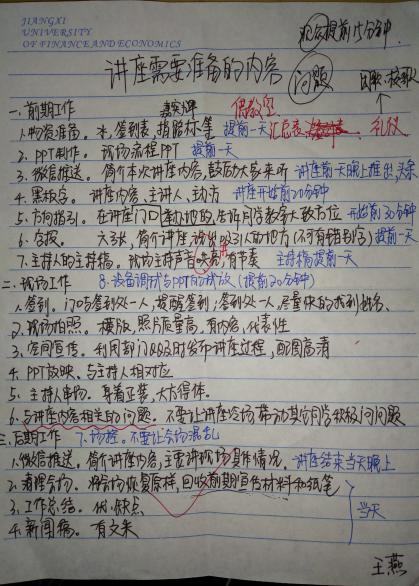 JIANGXI
UNIVERSITY
OF FINANCE AND ECONOMICS
提前15分钟
讲座需要准备的内容
问题
一.前期工作
1.物资准备。水,签到表,指路标等 提前一天
礼仪
2.PPT制作。现场流程PPT 提前一天
3.微信推送。简介本次讲座内容,鼓励大家来听 讲座前天晚上推出,头条
4.黑板字。讲座内容、主讲人、主办方 讲座开始前20分钟
5.方向指引。在讲座门口 告诉同学教室大致方位 开始前30分钟
6.海报。六多张,简介讲座 吸引人的地方(不可有错别字)提前一天
7.主持人的主持稿。现场主持声音响亮,有节奏 主持稿提前一天
8.设备调试与PPT的试放(提前20分钟)
二.现场工作
1.签到。门口与签到处一人,提醒签到;签到处一人,尽量快的找到姓名。
2.现场拍照。横版,照片质量高,有内容,代表性
3.空间宣传。利用部门QQ及时发布讲座过程,配图高清
4.PPT放映。与主持人相对应
5.主持人串场。身着正装,大方得体。
6.与讲座内容相关的问题。不要让讲座冷场 带动其它同学积极问问题
7.场控。不要让会场混乱
三.后期工作
1.微信推送。简介讲座内容,主要讲现场具体情况。讲座结束当天晚上
2.清理会场。将会场恢复原样,回收前期宣传材料和纸笔
3.工作总结。优、缺点
当天
4.新闻稿。有文采
王燕